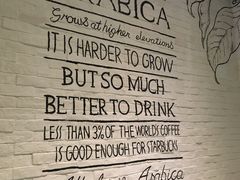 ARABICA
Grows at higher elevations
IT IS HARDER TO GROW
BUT SO MUCH
BETTER TO DRINK
LESS THAN 3% OF THE WORLD'S COFFEE
IS GOOD ENOUGH FOR STARBUCKS
Arabica